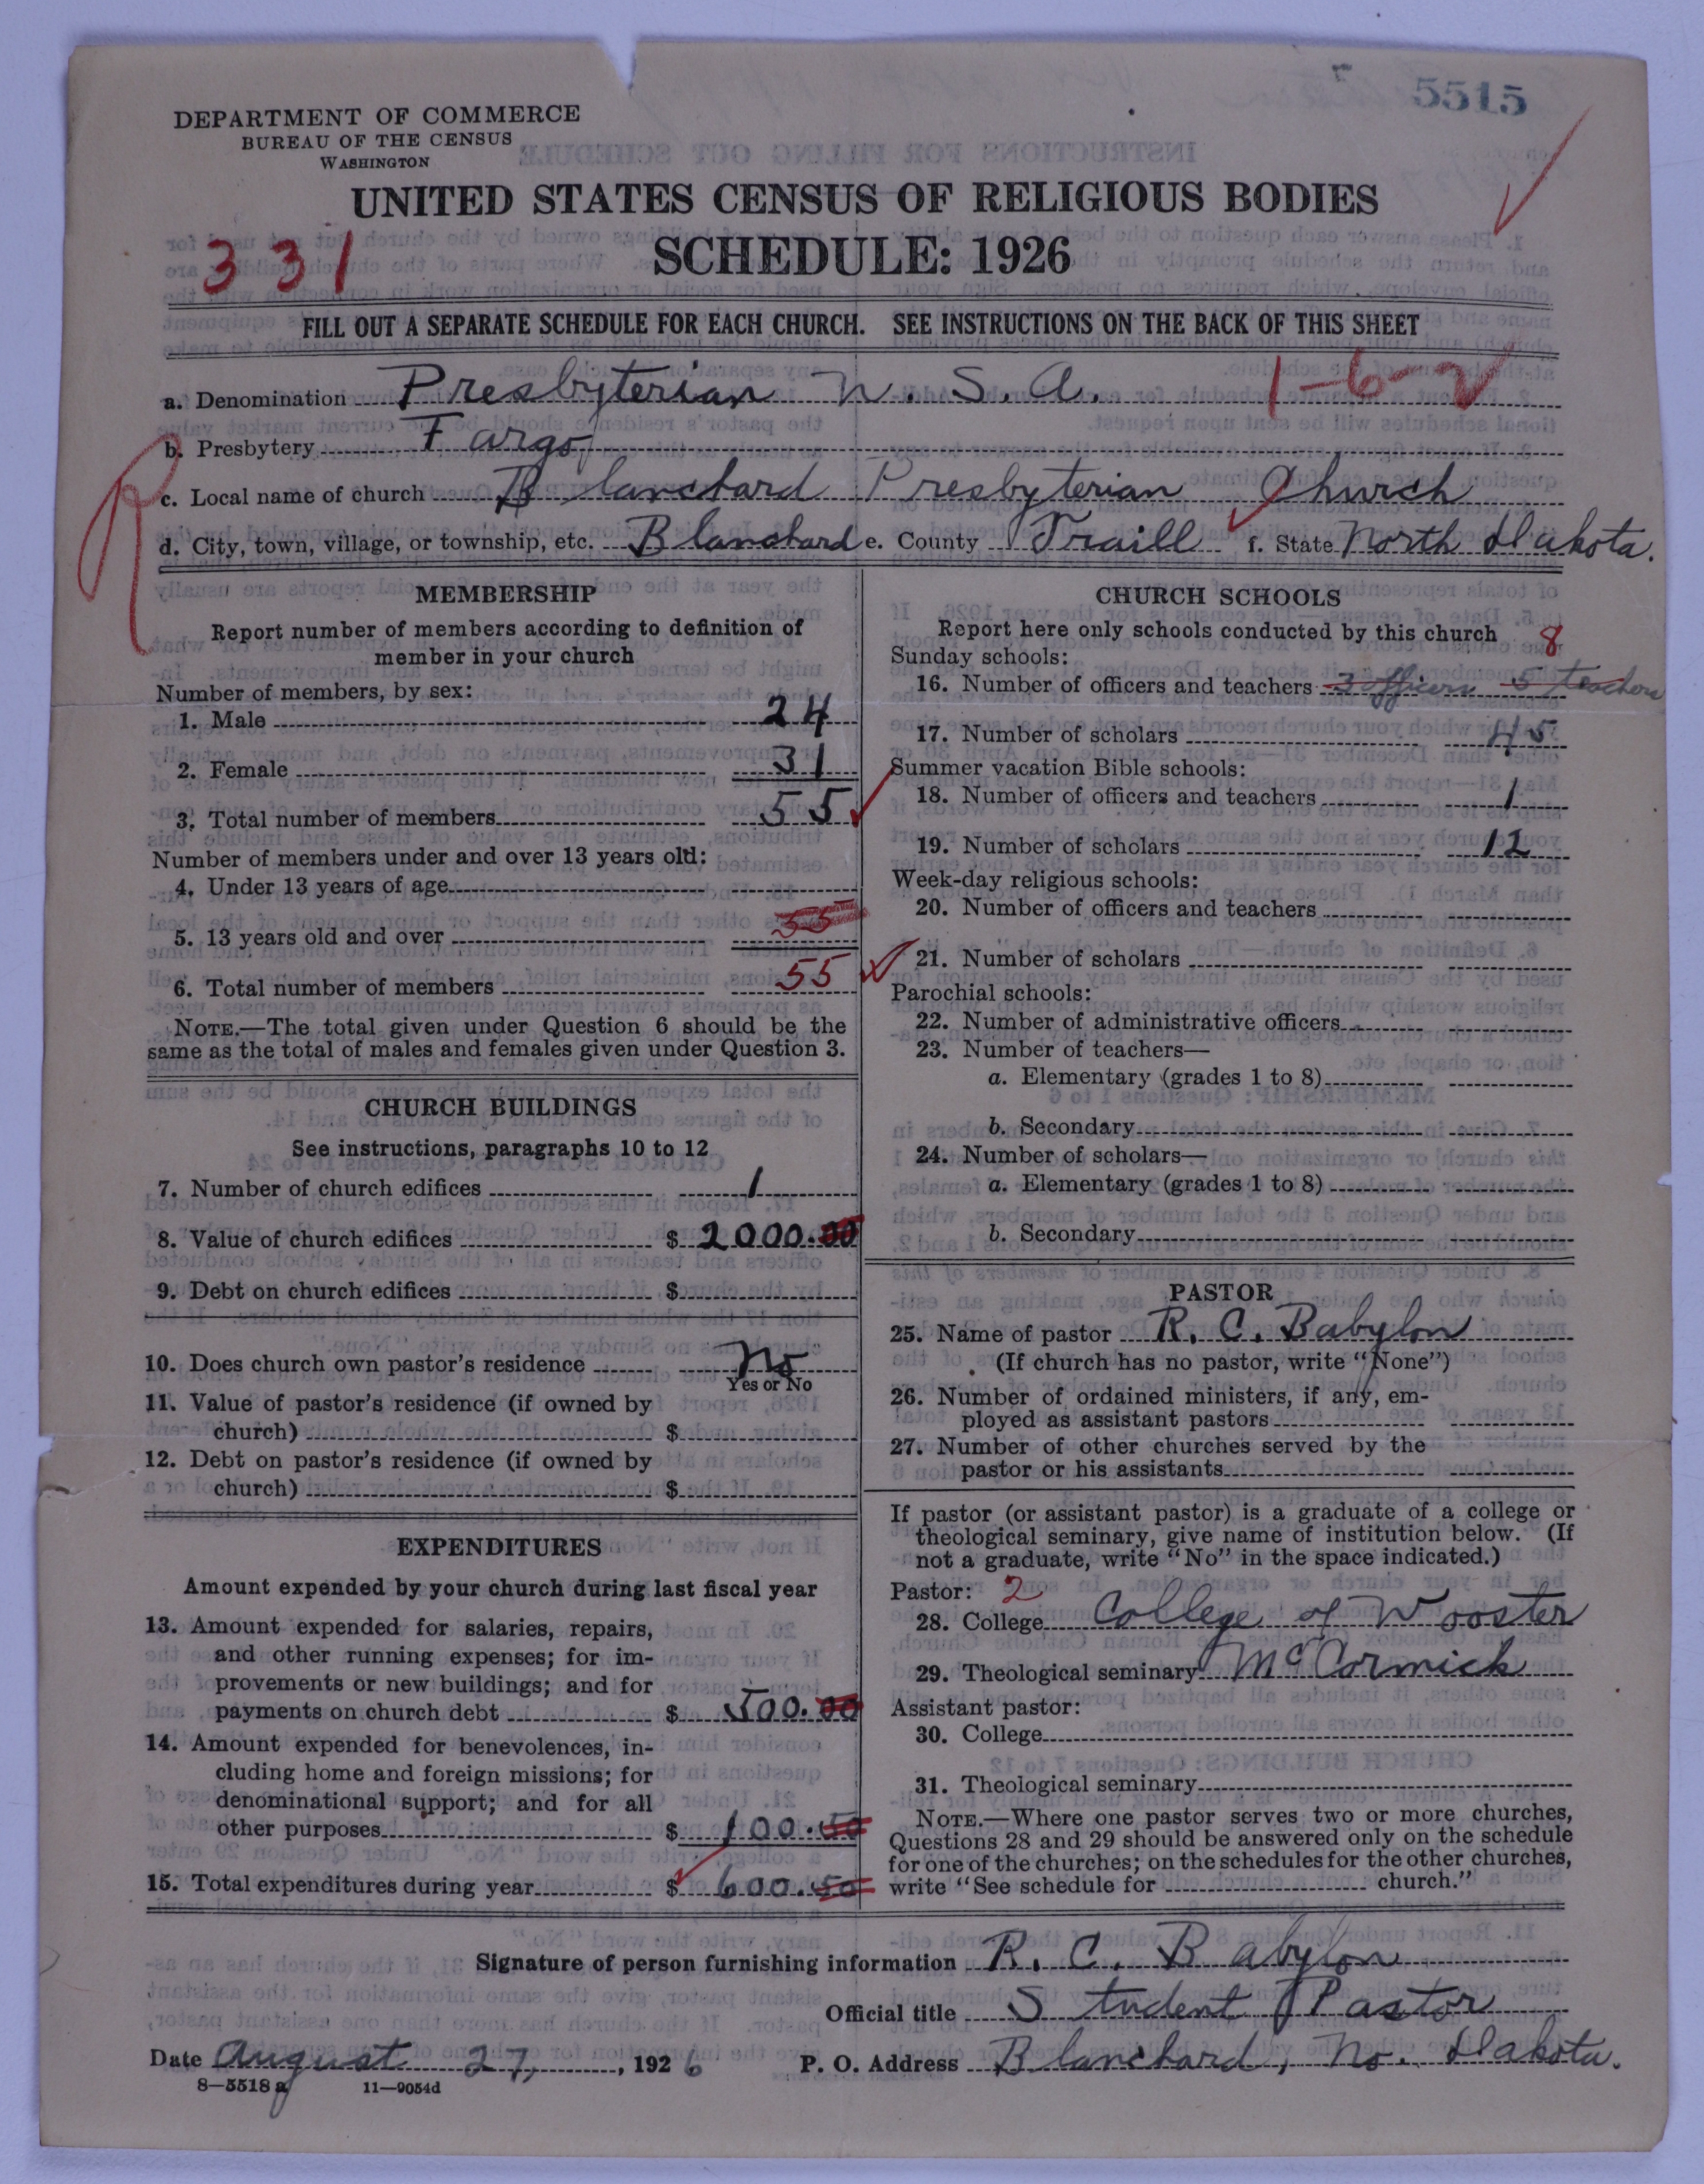 5515
DEPARTMENT OF COMMERCE
BUREAU OF THE CENSUS
WASHINGTON
UNITED STATES CENSUS OF RELIGIOUS BODIES
331
SCHEDULE: 1926
FILL OUT A SEPARATE SCHEDULE FOR EACH CHURCH. SEE INSTRUCTIONS ON THE BACK OF THIS SHEET
a. Denomination Presbyterian U. S. A. 1-6-2
b. Presbytery Fargo
R
c. Local name of church Blanchard Presbyterian Church
d. City, town, village, or township, etc. Blanchard e. County Traill f. State North Dakota.
MEMBERSHIP
Report number of members according to definition of
member in your church
Number of members, by sex:
1. Male 24
2. Female 31
3. Total number of members 55
Number of members under and over 13 years old:
4. Under 13 years of age
5. 13 years old and over 55
6. Total number of members 55
NOTE.—The total given under Question 6 should be the
same as the total of males and females given under Question 3.
CHURCH BUILDINGS
See instructions, paragraphs 10 to 12
7. Number of church edifices 1
8. Value of church edifices $ 2000.00
9. Debt on church edifices $
10. Does church own pastor's residence No
Yes or No
11. Value of pastor's residence (if owned by
church) $
12. Debt on pastor's residence (if owned by
church) $
EXPENDITURES
Amount expended by your church during last fiscal year
13. Amount expended for salaries, repairs,
and other running expenses; for im-
provements or new buildings; and for
payments on church debt $ 500.00
14. Amount expended for benevolences, in-
cluding home and foreign missions; for
denominational support; and for all
other purposes $ 100.50
15. Total expenditures during year $ 600.50
CHURCH SCHOOLS
Report here only schools conducted by this church
8
Sunday schools:
16. Number of officers and teachers 3 officers 5 teachers
17. Number of scholars 45
Summer vacation Bible schools:
18. Number of officers and teachers 1
19. Number of scholars 12
Week-day religious schools:
20. Number of officers and teachers
21. Number of scholars
Parochial schools:
22. Number of administrative officers
23. Number of teachers—
a. Elementary (grades 1 to 8)
b. Secondary
24. Number of scholars—
a. Elementary (grades 1 to 8)
b. Secondary
PASTOR
25. Name of pastor R. C. Babylon
(If church has no pastor, write "None")
26. Number of ordained ministers, if any, em-
ployed as assistant pastors
27. Number of other churches served by the
pastor or his assistants
If pastor (or assistant pastor) is a graduate of a college or
theological seminary, give name of institution below. (If
not a graduate, write "No" in the space indicated.)
Pastor: 2
28. College College of Wooster
29. Theological seminary McCormick
Assistant pastor:
30. College
31. Theological seminary
NOTE.—Where one pastor serves two or more churches,
Questions 28 and 29 should be answered only on the schedule
for one of the churches; on the schedules for the other churches,
write "See schedule for church."
Signature of person furnishing information R. C. Babylon
Official title Student Pastor
Date August 27, 1926 P. O. Address Blanchard, No. Dakota.
8—5518 a 11—9054d